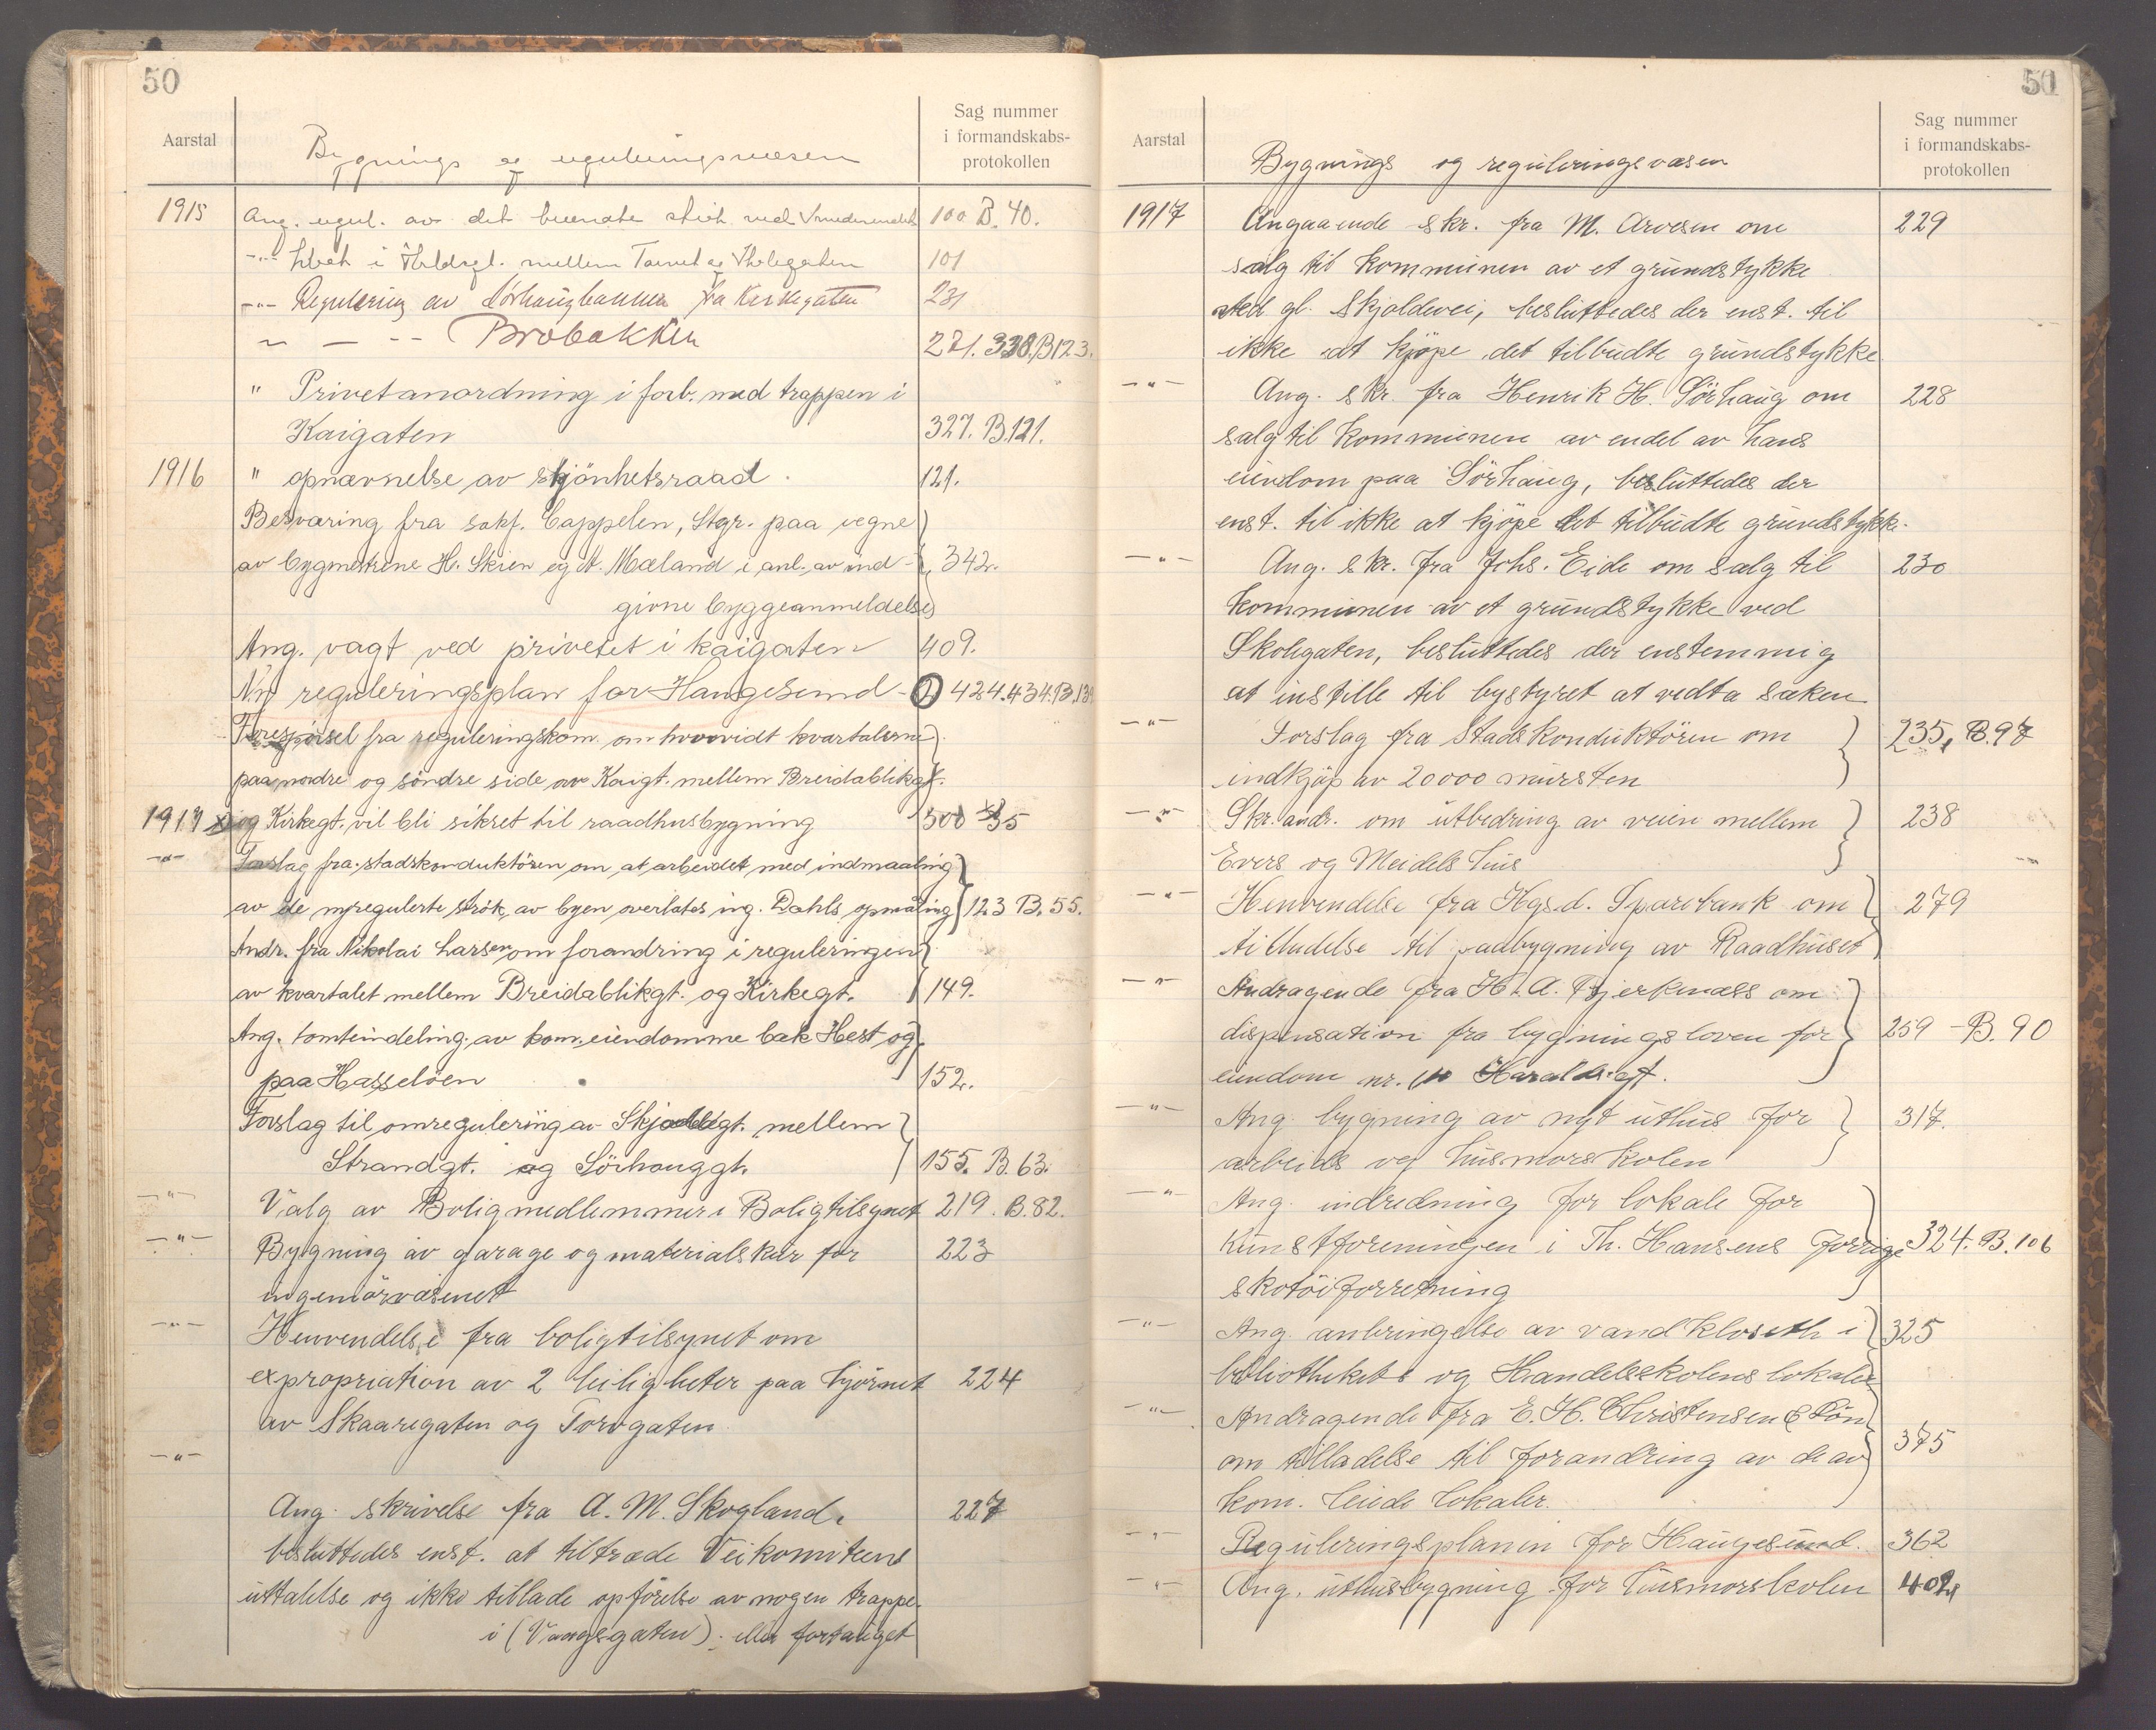 50
Aarstal
Bygnings og reguleringsvæsen
Sag nummer
i formandskabs-
protokollen
1915 Ang. regul. av det brændte strøk ved Smedasundet 100 B. 40.
-"- i Haraldsgt. mellem Torvet og Skolegaten 101
-"- Regulering av Sörhaugbakken fra Kirkegaten 231
" — -- Brobakken 281. 338. B123.
" Privetanordning i forb. med trappen i
Kaigaten 327. B.121.
1916 " opnævnelse av skjönhetsraad. 121.
Besværing fra sakf. Cappelen, Stgr. paa vegne
av bygmestrene H. Skien og A. Mæland i anl. av ind- 342.
givne byggeanmeldelse
Ang. vagt ved privetet i kaigaten 409.
Ny reguleringsplan for Haugesund - 424. 434. B.139
Forespörsel fra reguleringskom. om hvorvidt kvartalerne
paa nordre og söndre side av Kaigt. mellem Breidablikgt.
1917 og Kirkegt. vil bli sikret til raadhusbygning 35
-"- Forslag fra stadskonduktören om at arbeidet med indmaaling
av de nyregulerte strök av byen overlates ing. Dahls opmåling 123 B. 55.
Andr. fra Nikolai Larsen om forandring i reguleringen
av kvartalet mellem Breidablikgt. og Kirkegt. 149.
Ang. tomteindeling av kom. eiendomme bak Hest og
paa Hasseløen 152.
Forslag til omregulering av Skjoldegt. mellem
Strandgt. og Sörhauggt. 155. B. 63.
-"- Valg av Boligmedlemmer i Boligtilsynet 219. B.82.
-"- Bygning av garage og materialskur for 223
ingeniörvæsenet
-"- Henvendelse fra boligtilsynet om
expropriation av 2 leiligheter paa hjörnet 224
av Skaaregaten og Torvgaten.
-"-
Ang. skrivelse fra A. M. Skogland. 227
besluttedes enst. at tiltræde Veikomiteens
uttalelse og ikke tillade opförelse av nogen trappe
i (Vangsgaten). eller fortauget
51
Aarstal
Bygnings og reguleringsvæsen
Sag nummer
i formandskabs-
protokollen
1917 Angaaende skr. fra M. Arvesen om 229
salg til kommunen av et grundstykke
ved gl. Skjoldevei, besluttedes der enst. til
ikke at kjöpe det tilbudte grundstykke
-"- Ang. skr. fra Henrik H. Sörhaug om 228
salg til kommunen av endel av hans
eiendom paa Sörhaug, besluttedes der
enst. til ikke at kjöpe det tilbudte grundstykke.
-"- Ang. skr. fra Johs. Eide om salg til 230
kommunen av et grundstykke ved
Skolegaten, besluttedes der enstemmig
at instille til bystyret at vedta saken
-"- Forslag fra Stadskonduktören om 235, B.97
indkjöp av 20000 mursten
-"- Skr. andr. om utbedring av veien mellem 238
Evers og Meidels hus
-"- Henvendelse fra Hgsd. Sparebank om 279
tilladelse til paabygning av Raadhuset
-"- Andragende fra H. A. Bjerknæss om
dispensation fra bygningsloven for 259 - B. 90
eiendom nr. Haraldsgt.
-"- Ang. bygning av nyt uthus for 317.
arbeids og husmorskolen
-"- Ang. indredning for lokale for
Kunstforeningen i Th. Hansens forrige 324. B. 106
skotöiforretning
-"- Ang. anbringelse av vandklosett i 325
bibliotheket og Handelsskolens lokaler
-"- Andragende fra E. H. Christensen & Sön
om tilladelse til forandring av de av 375
kom. leiede lokaler.
-"- Reguleringsplanen for Haugesund. 362
-"- Ang. uthusbygning for husmorskolen 402